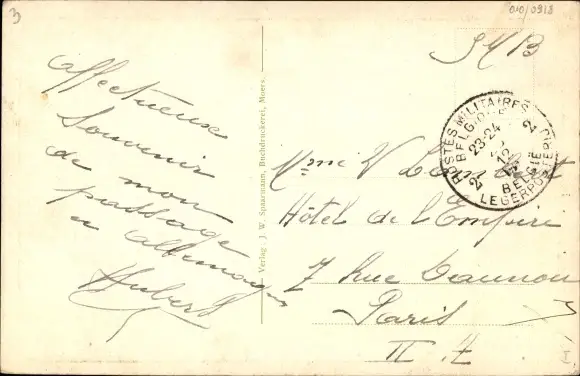 3
010/0918
S M B
Affectueux
Souvenir
de mon
passage
en Allemagne
Hubert
Verlag J. W. Spaarmann, Buchdruckerei, Moers.
POSTES MILITAIRES
BELGIQUE
23-24
12
BELGIE
LEGERPOSTERIJ
2
2
Mme V
Hôtel de l'Empire
7 Rue Daunou
Paris
II
I